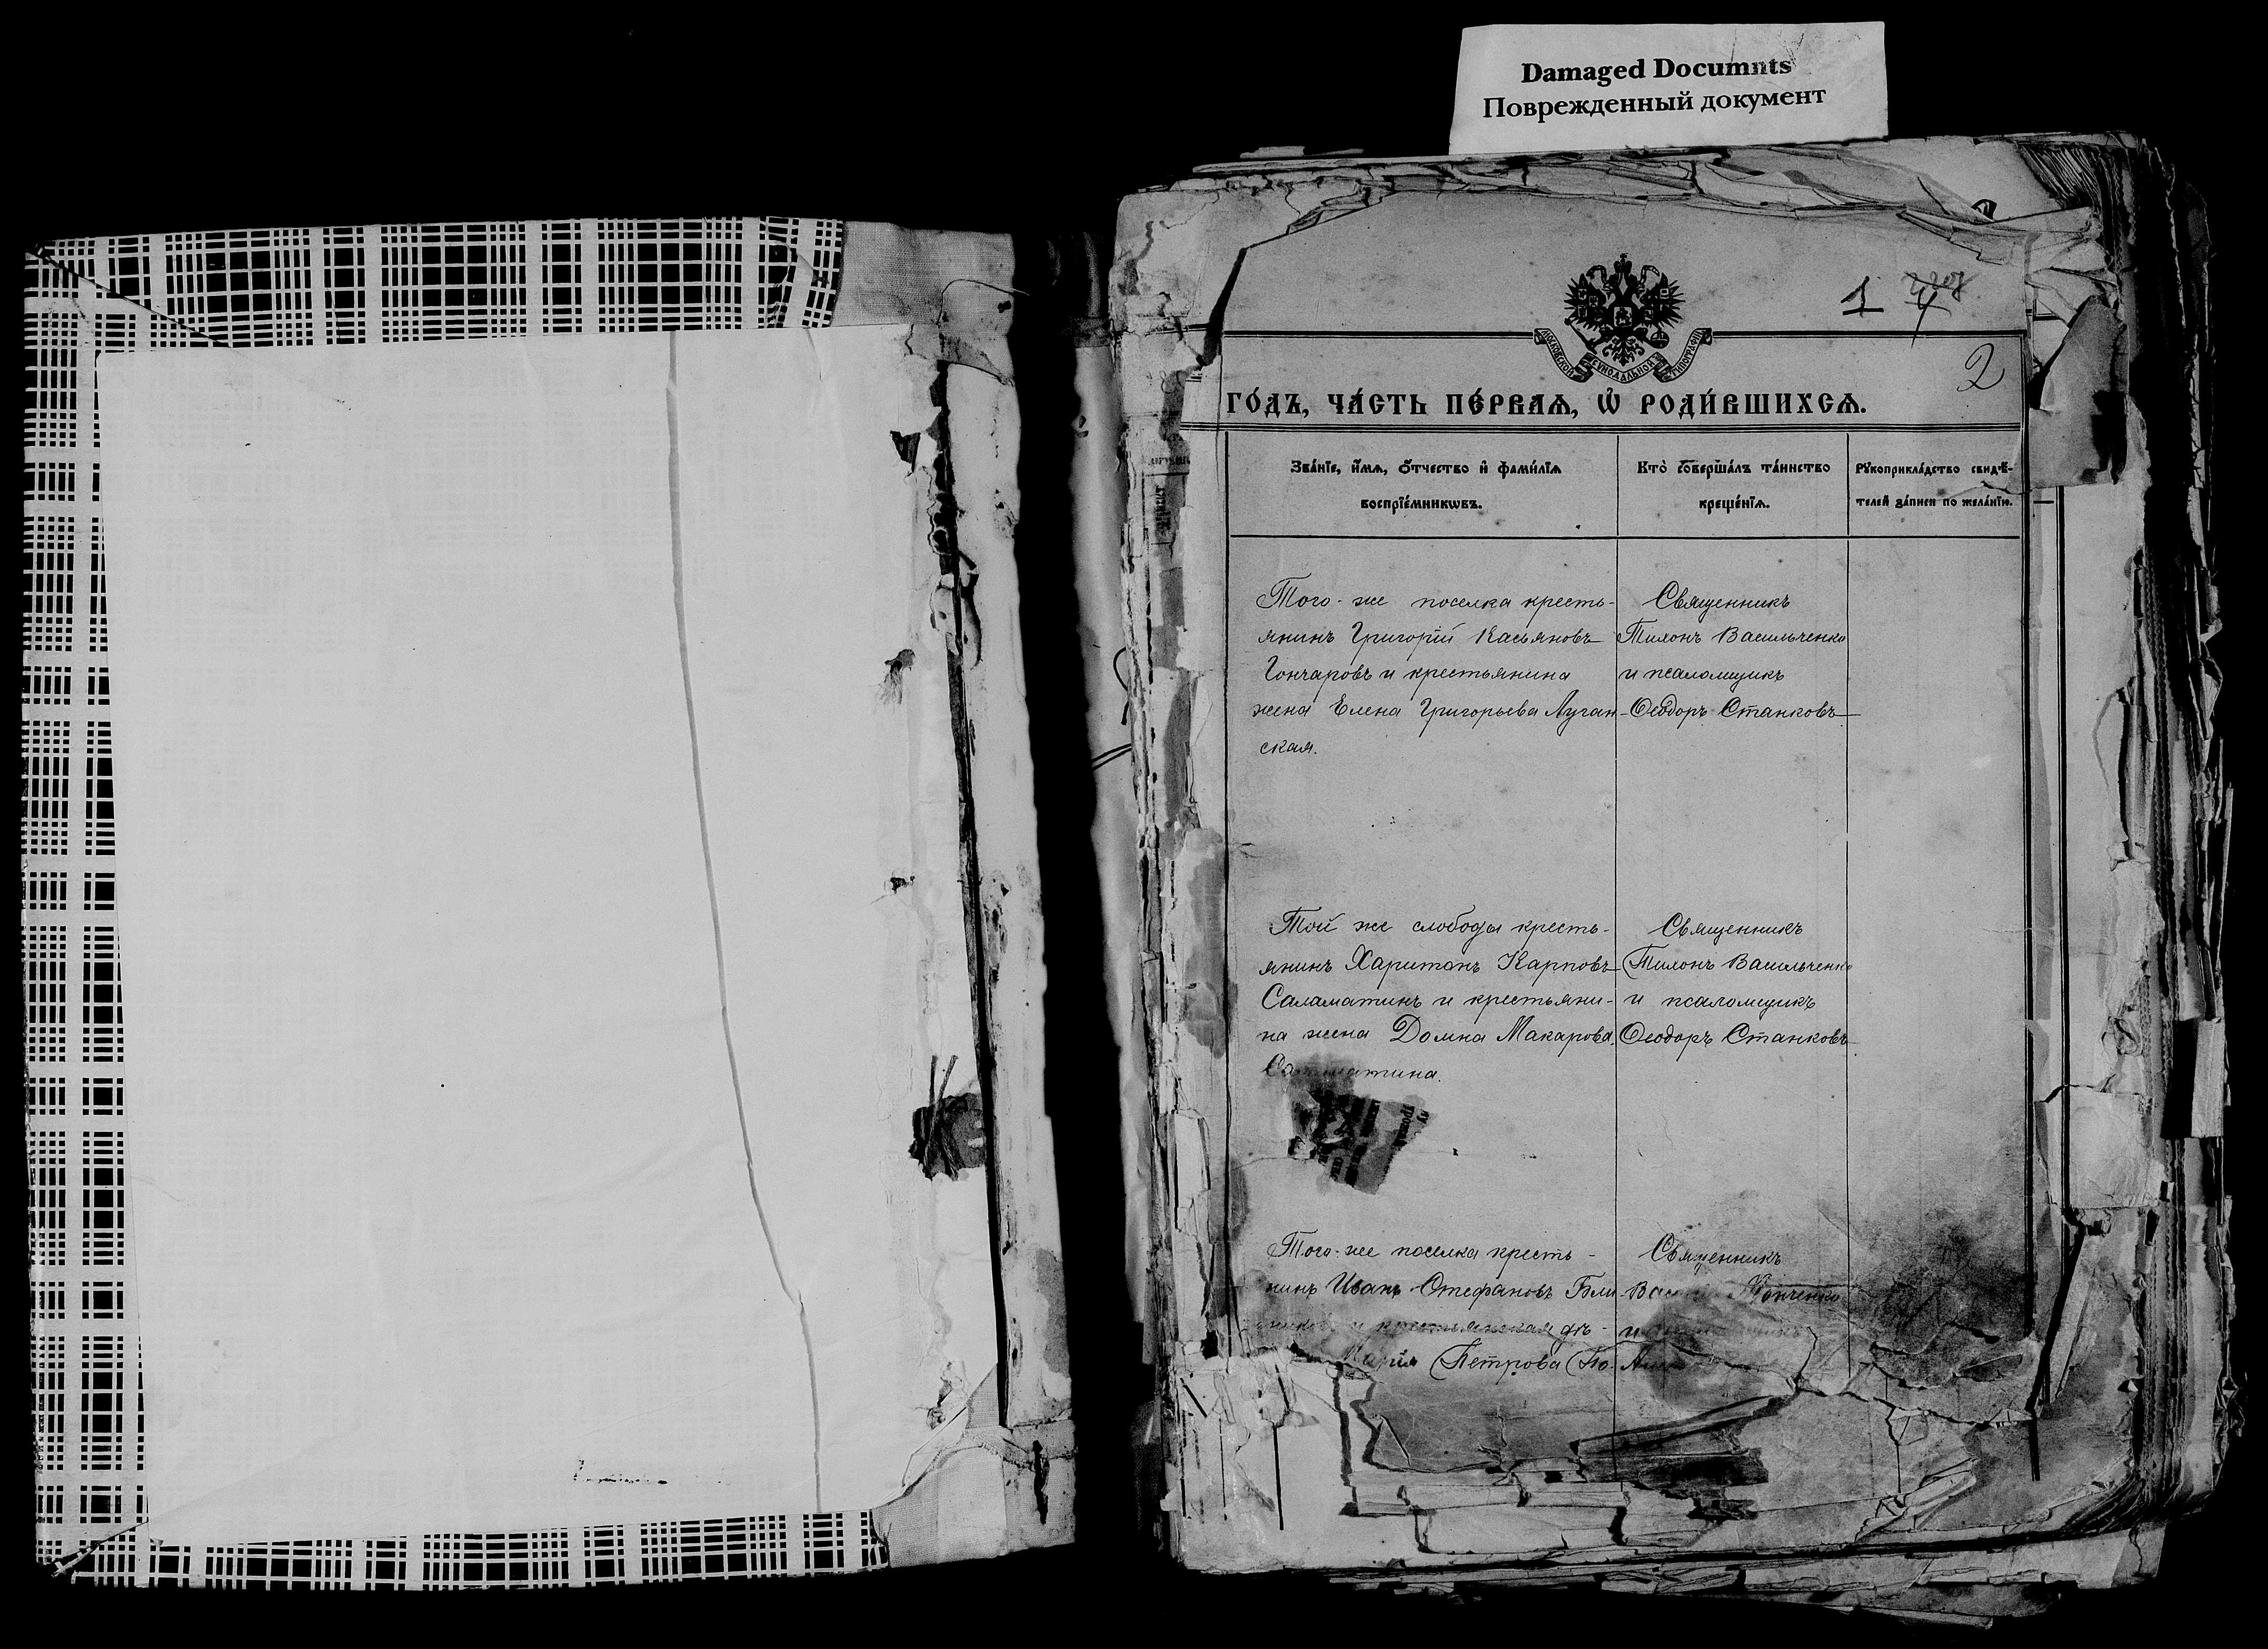 Damaged Documnts
Поврежденный документ
1
2
МОСКОВСКОЙ СѴНОДАЛЬНОЙ ТИПОГРАФІИ
ГО́ДЪ, ЧА́СТЬ ПЕ́РВАѦ, Ѽ РОДИ́ВШИХСѦ.
Зва́нїе, и҆́мѧ, ѻ҆́тчество и҆ фами́лїѧ
воспрїе́мникѡвъ.
Кто̀ соверша́лъ та́инство
креще́нїѧ.
Рꙋкоприкла́дство свидѣ́-
телей за́писи по жела́нїю.
Того-же поселка кресть-
янинъ Григорій Касьяновъ
Гончаровъ и крестьянина
жена Елена Григорьева Луган-
ская.
Священникъ
Тихонъ Васильченко
и псаломщикъ
Ѳеодоръ Станковъ
Той же слободы кресть-
янинъ Харитонъ Карповъ
Саламатинъ и крестьяни-
на жена Домна Макарова
Саламатина.
Священникъ
Тихонъ Васильченко
и псаломщикъ
Ѳеодоръ Станковъ
Того-же поселка кресть-
нинъ Иванъ Стефановъ Бли-
и крестьянская дѣ-
Марія Петрова По-
Священникъ
и